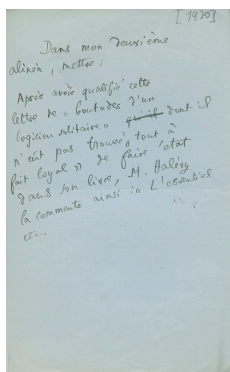 [1930]
Dans mon deuxième
alinéa, mettre :
Après avoir qualifié cette
lettre de « boutades d'un
logicien solitaire » dont il
n'eût pas trouvé "tout à
fait loyal" de faire état
dans son livre, M. Halévy
la commente ainsi : « L'essentiel